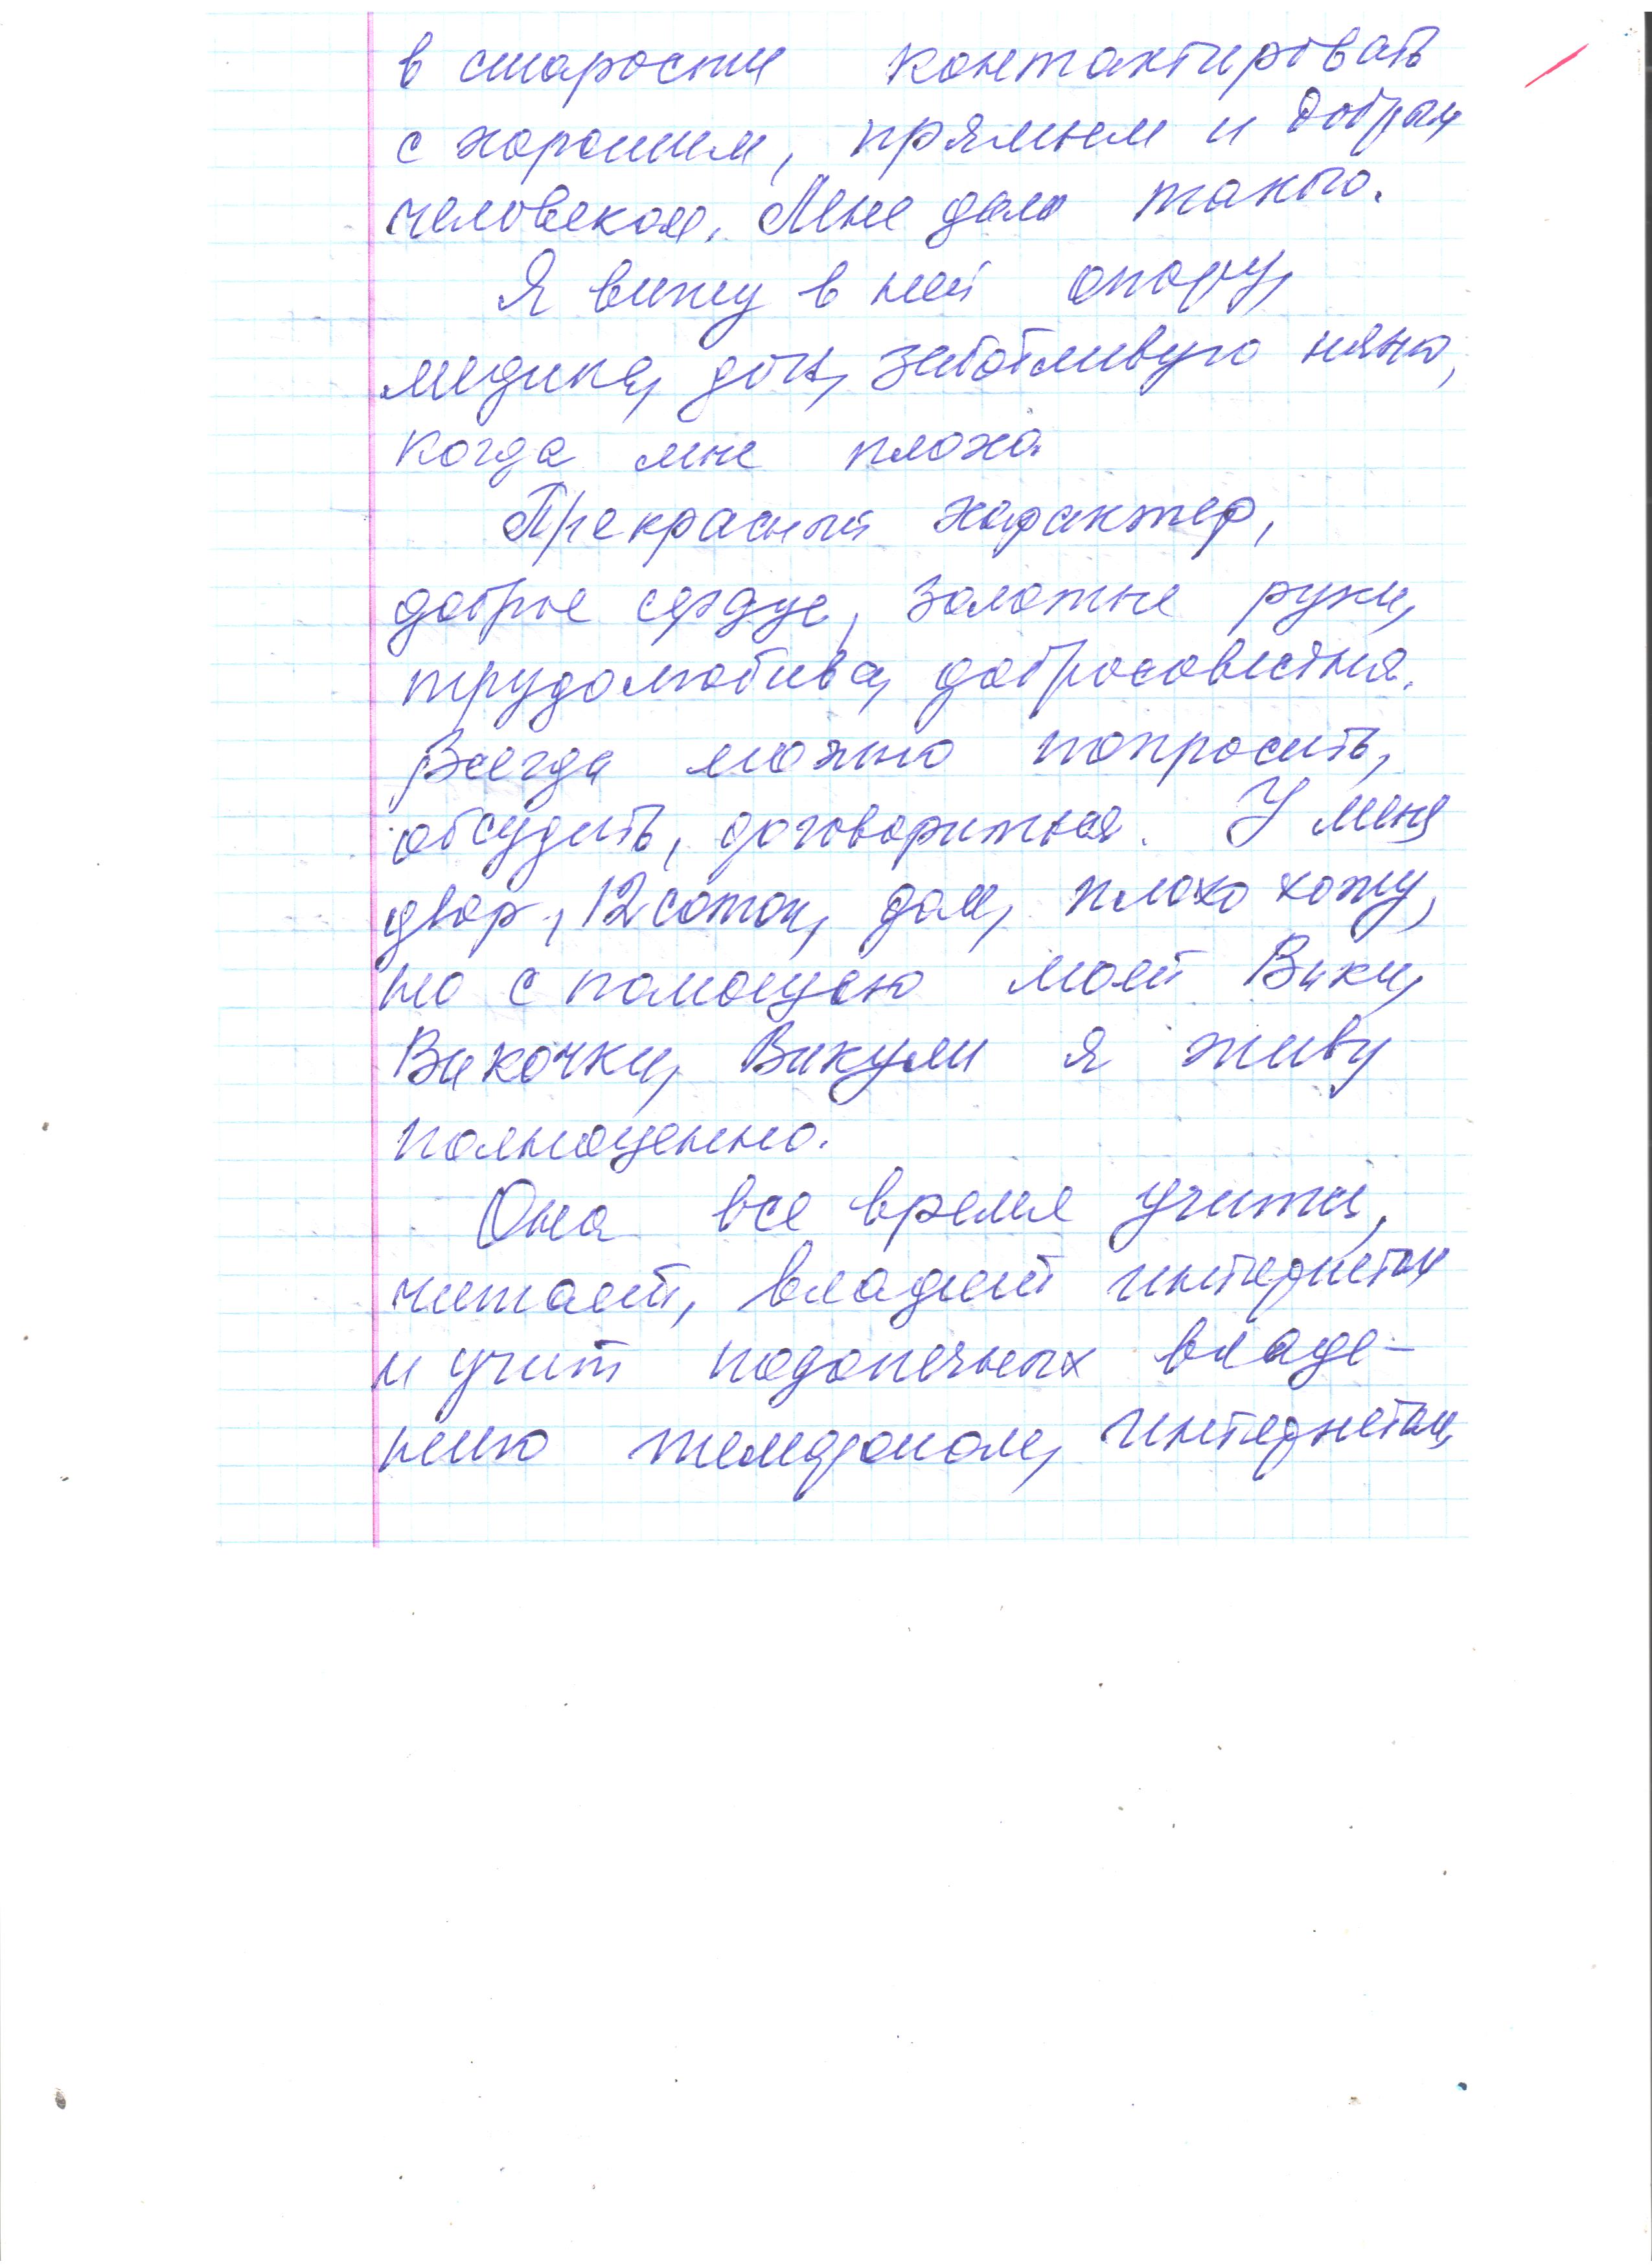 в старости контактировать
с хорошим, прямым и добрым
человеком. Мне дали такого.
Я вижу в ней опору,
медика, дочь, заботливую няню,
когда мне плохо.
Прекрасный характер,
доброе сердце, золотые руки,
трудолюбива, добросовестна.
Всегда можно попросить,
обсудить, договориться. У меня
двор, 12 соток, дом, плохо хожу,
но с помощью моей Вики,
Викочки, Викули я живу
полноценно.
Она все время учится,
читает, владеет интернетом
и учит подопечных владе-
нию телефоном, интернетом,